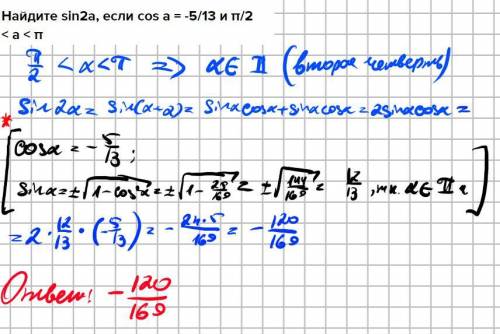 Найдите sin2a, если cos a = -5/13 и π/2
< a < π
π/2 < α < π => α ∈ II (вторая четверть)
Sin 2α = Sin(α+α) = Sinα cosα + sinα cosα = 2sinα cosα =
* [ cosα = - 5/13 ;
Sinα = ± √(1-cos²α) = ± √(1 - 25/169) = ± √(144/169) = 12/13 , т.к. α ∈ II ч ]
= 2 · 12/13 · (-5/13) = - 24·5/169 = - 120/169
Ответ: - 120/169